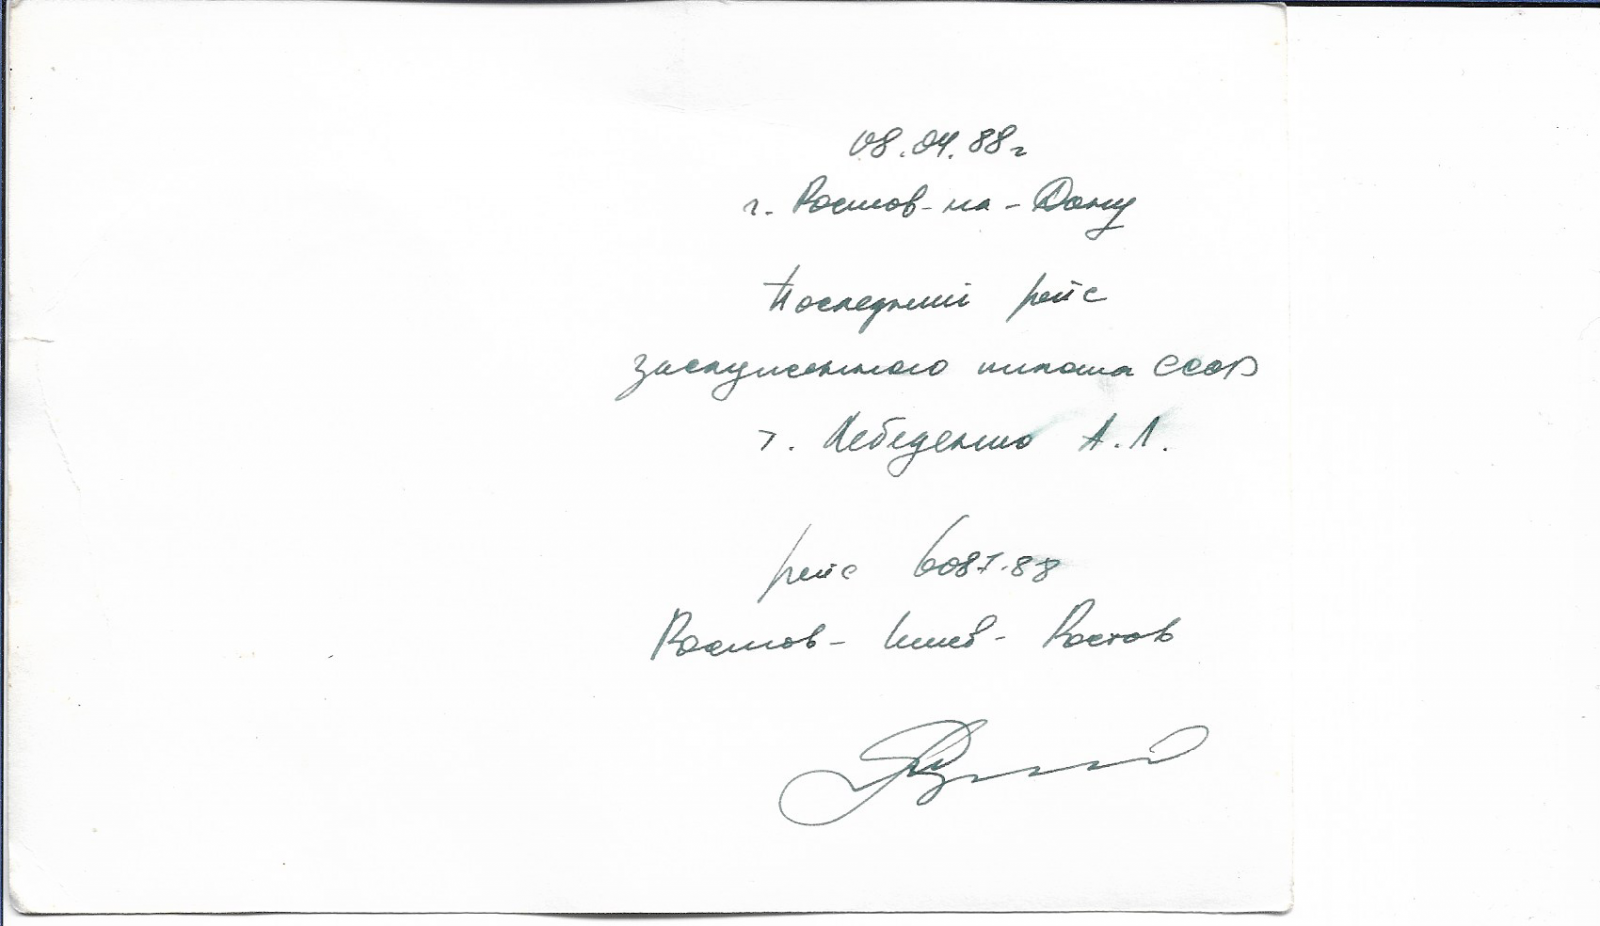 08.04.88г
г. Ростов-на-Дону
Последний рейс
заслуженного пилота СССР
т. Лебеденко А.Л.
рейс 6087-88
Ростов- Киев- Ростов